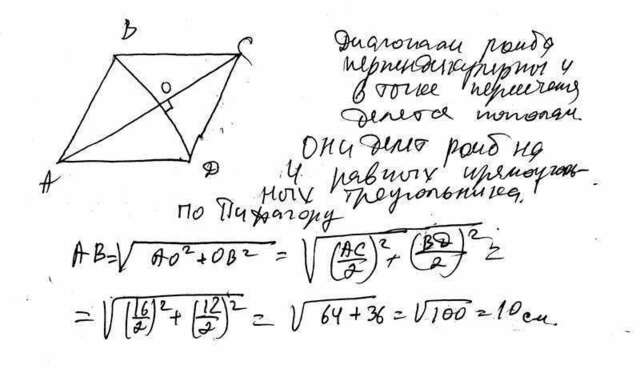 B
C
O
A
D
Диагонали ромба
перпендикулярны и
в точке пересечения
делятся пополам.
Они делят ромб на
4 равных прямоуголь-
ных треугольника.
по Пифагору
AB=√(AO²+OB²) = √((AC/2)²+(BD/2)²) =
= √((16/2)²+(12/2)²) = √(64+36) = √100 = 10 см.